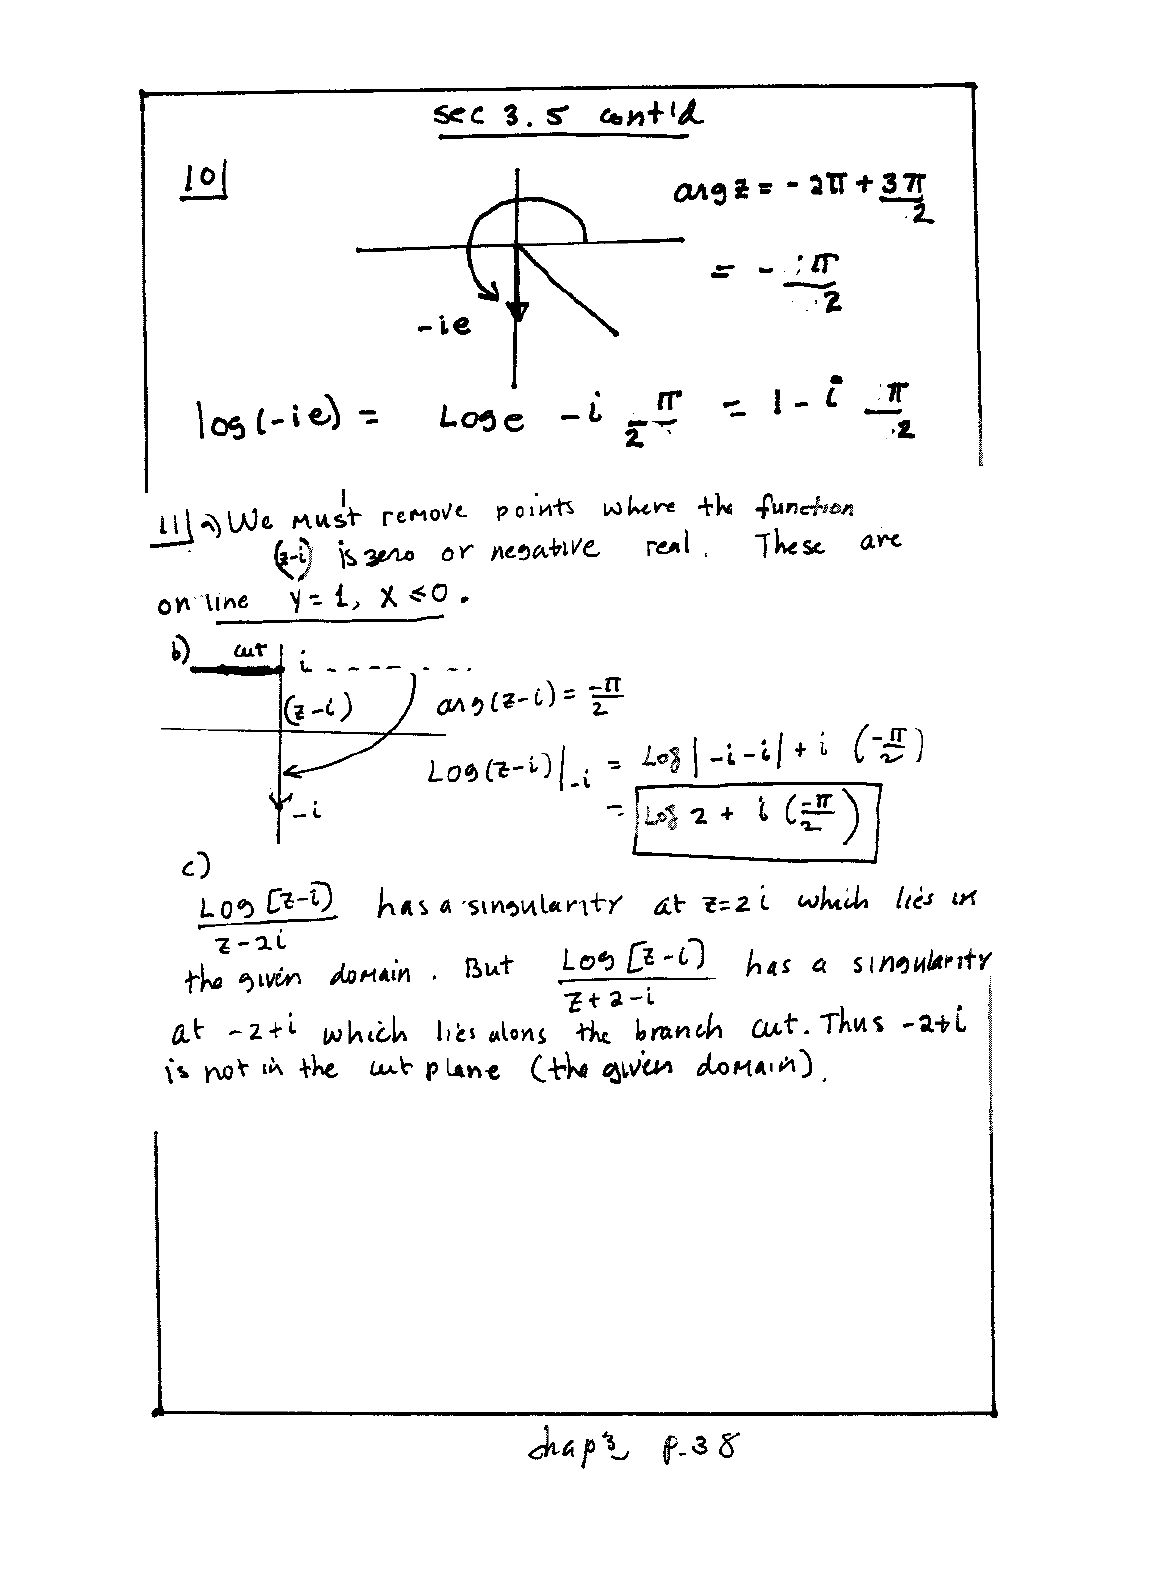 sec 3.5 cont'd
10|
arg z = - 2π + 3π/2
= - π/2
-ie
log(-ie) = Log e - i π/2 = 1 - i π/2
11| a) We must remove points where the function
(z-i) is zero or negative real. These are
on line y = 1, x ≤ 0.
b) cut i
(z-i) arg(z-i) = -π/2
Log(z-i)|-i = Log |-i-i| + i (-π/2)
-i = Log 2 + i (-π/2)
c)
Log [z-i]/(z-2i) has a singularity at z=2i which lies in
the given domain. But Log [z-i]/(z+2-i) has a singularity
at -2+i which lies along the branch cut. Thus -2+i
is not in the cut plane (the given domain).
chap 3 p. 38